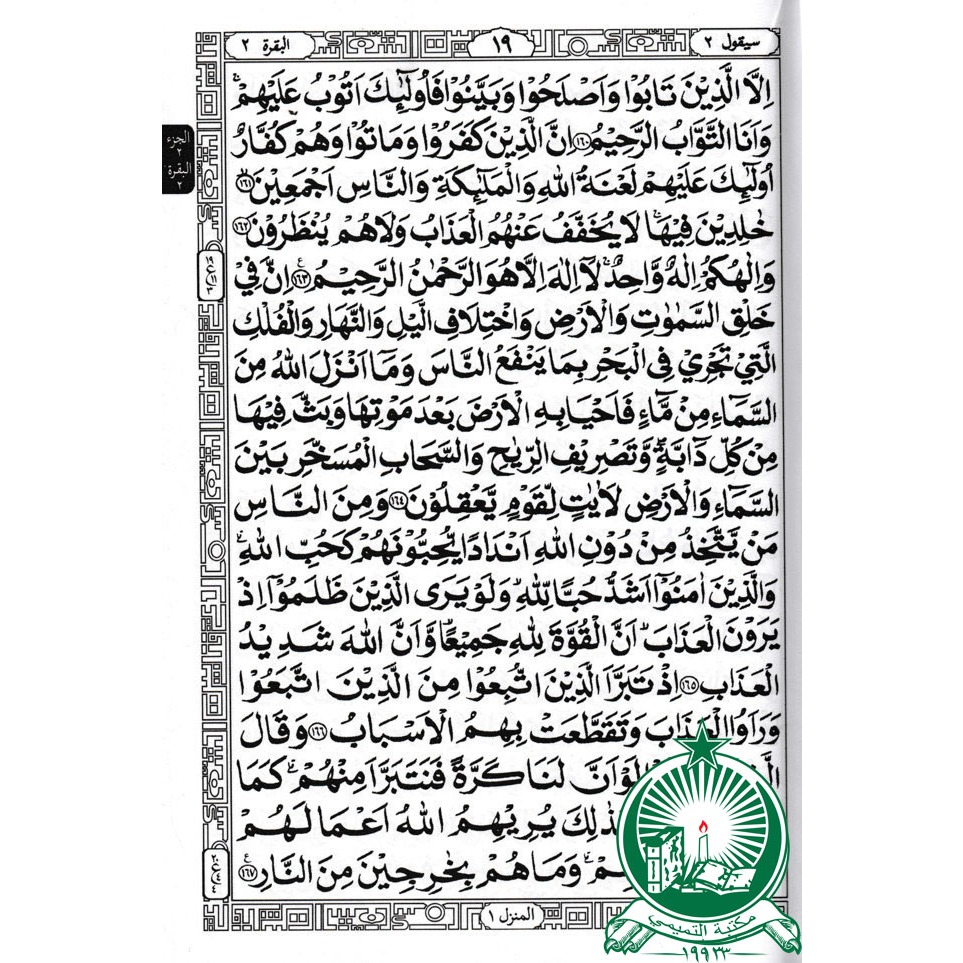 سيقول ٢
١٩
البقرة ٢
اِلَّا الَّذِيْنَ تَابُوْا وَاَصْلَحُوْا وَبَيَّنُوْا فَاُولٰٓئِكَ اَتُوْبُ عَلَيْهِمْ ۚ
وَاَنَا التَّوَّابُ الرَّحِيْمُ ١٦٠ اِنَّ الَّذِيْنَ كَفَرُوْا وَمَاتُوْا وَهُمْ كُفَّارٌ
اُولٰٓئِكَ عَلَيْهِمْ لَعْنَةُ اللّٰهِ وَالْمَلٰٓئِكَةِ وَالنَّاسِ اَجْمَعِيْنَ ١٦١
خٰلِدِيْنَ فِيْهَا ۚ لَا يُخَفَّفُ عَنْهُمُ الْعَذَابُ وَلَا هُمْ يُنْظَرُوْنَ ١٦٢
وَاِلٰهُكُمْ اِلٰهٌ وَّاحِدٌ ۚ لَآ اِلٰهَ اِلَّا هُوَ الرَّحْمٰنُ الرَّحِيْمُ ١٦٣ اِنَّ فِيْ
خَلْقِ السَّمٰوٰتِ وَالْاَرْضِ وَاخْتِلَافِ الَّيْلِ وَالنَّهَارِ وَالْفُلْكِ
الَّتِيْ تَجْرِيْ فِى الْبَحْرِ بِمَا يَنْفَعُ النَّاسَ وَمَآ اَنْزَلَ اللّٰهُ مِنَ
السَّمَآءِ مِنْ مَّآءٍ فَاَحْيَا بِهِ الْاَرْضَ بَعْدَ مَوْتِهَا وَبَثَّ فِيْهَا
مِنْ كُلِّ دَآبَّةٍ ۖ وَّتَصْرِيْفِ الرِّيٰحِ وَالسَّحَابِ الْمُسَخَّرِ بَيْنَ
السَّمَآءِ وَالْاَرْضِ لَاٰيٰتٍ لِّقَوْمٍ يَّعْقِلُوْنَ ١٦٤ وَمِنَ النَّاسِ
مَنْ يَّتَّخِذُ مِنْ دُوْنِ اللّٰهِ اَنْدَادًا يُّحِبُّوْنَهُمْ كَحُبِّ اللّٰهِ ۗ
وَالَّذِيْنَ اٰمَنُوْٓا اَشَدُّ حُبًّا لِّلّٰهِ ۗ وَلَوْ يَرَى الَّذِيْنَ ظَلَمُوْٓا اِذْ
يَرَوْنَ الْعَذَابَ ۙ اَنَّ الْقُوَّةَ لِلّٰهِ جَمِيْعًا ۙ وَّاَنَّ اللّٰهَ شَدِيْدُ
الْعَذَابِ ١٦٥ اِذْ تَبَرَّاَ الَّذِيْنَ اتُّبِعُوْا مِنَ الَّذِيْنَ اتَّبَعُوْا
وَرَاَوُا الْعَذَابَ وَتَقَطَّعَتْ بِهِمُ الْاَسْبَابُ ١٦٦ وَقَالَ
لَوْ اَنَّ لَنَا كَرَّةً فَنَتَبَرَّاَ مِنْهُمْ كَمَا
ذٰلِكَ يُرِيْهِمُ اللّٰهُ اَعْمَالَهُمْ
وَمَا هُمْ بِخٰرِجِيْنَ مِنَ النَّارِ ١٦٧
المنزل ١
الجزء
٢
البقرة
٢
مكتبة التميمي
١٩٩٣٣